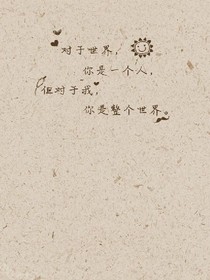 对于世界，
你是一个人，
但对于我，
你是整个世界。